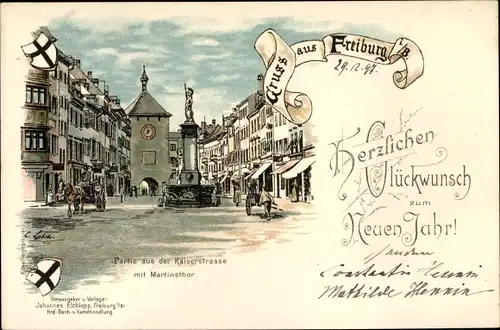 Gruss aus Freiburg i/B
29.12.97.
Herzlichen
Glückwunsch
zum
Neuen Jahr!
senden
Constantin Hennin
Mathilde Hennin
Partie aus der Kaiserstrasse
mit Martinsthor.
Herausgeber u. Verleger
Johannes Elchlepp, Freiburg i/Br.
Hof-Buch- u. Kunsthandlung